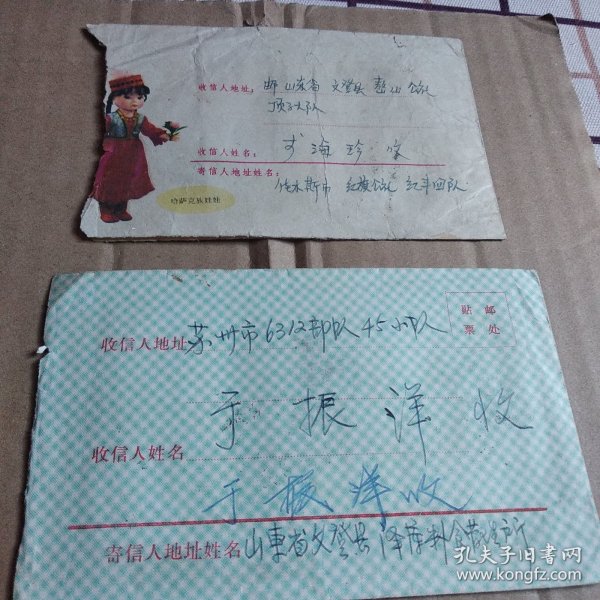 收信人地址: 邮 山东省 文登县
顶子大队
收信人姓名: 于海珍 收
寄信人地址姓名: 佳木斯市 红旗公社 红丰四队
哈萨克族娃娃
贴邮
票处
收信人地址 苏州市6312部队45小队
收信人姓名 于振洋收
于振洋收
寄信人地址姓名 山东省文登县泽库
孔夫子旧书网
www.kongfz.com